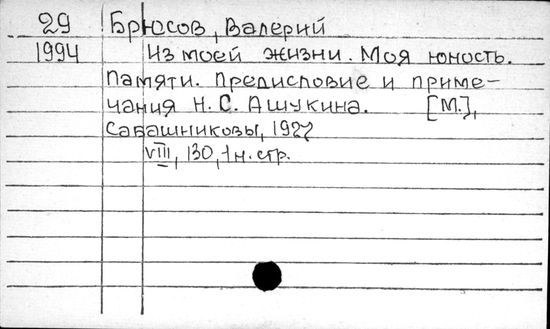 29 Брюсов, Валерий
1994 Из моей жизни. Моя юность.
Памяти. Предисловие и приме-
чания Н. С. Ашукина. [М.],
Сабашниковы, 1927
VIII, 130, 1 н. стр.